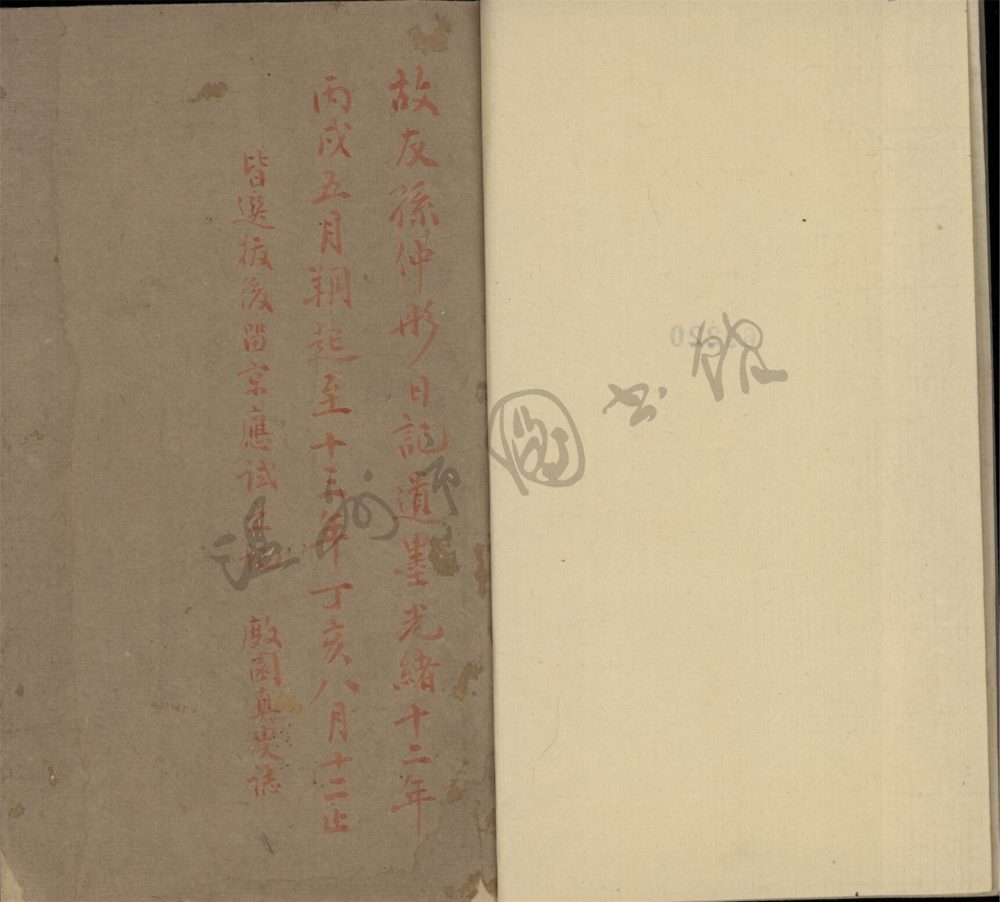 故友孫仲彤日記遺墨光緒十二年
丙戌五月朔起至十三年丁亥八月十二止
皆選拔後留京應試
厰園真叟誌
温州市圖书館